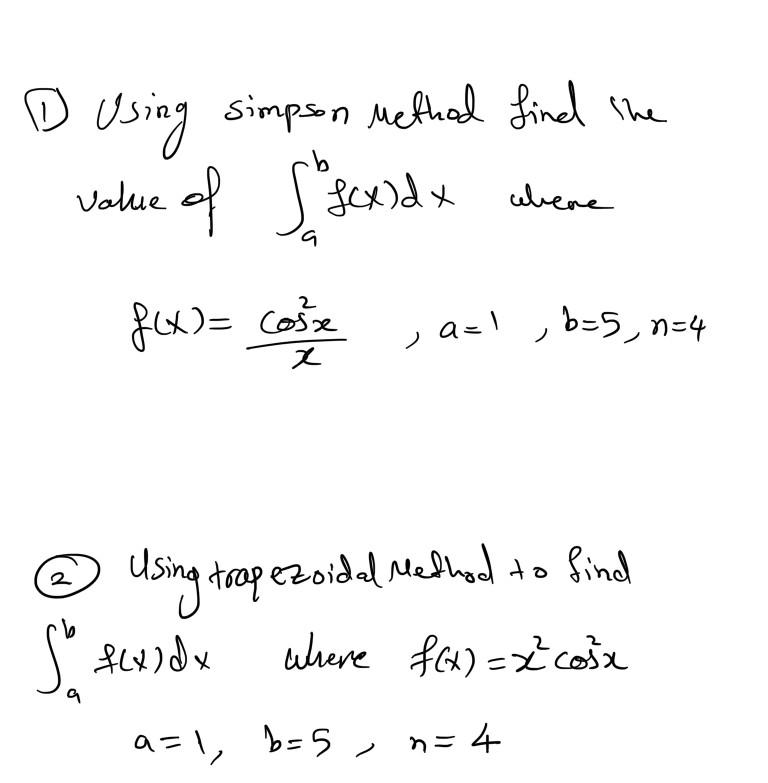 ① Using simpson Method find the
value of ∫ₐᵇ f(x)dx where
f(x) = cos²x / x , a=1 , b=5, n=4
② Using trapezoidal Method to find
∫ₐᵇ f(x)dx where f(x) = x² cos²x
a=1, b=5, n=4